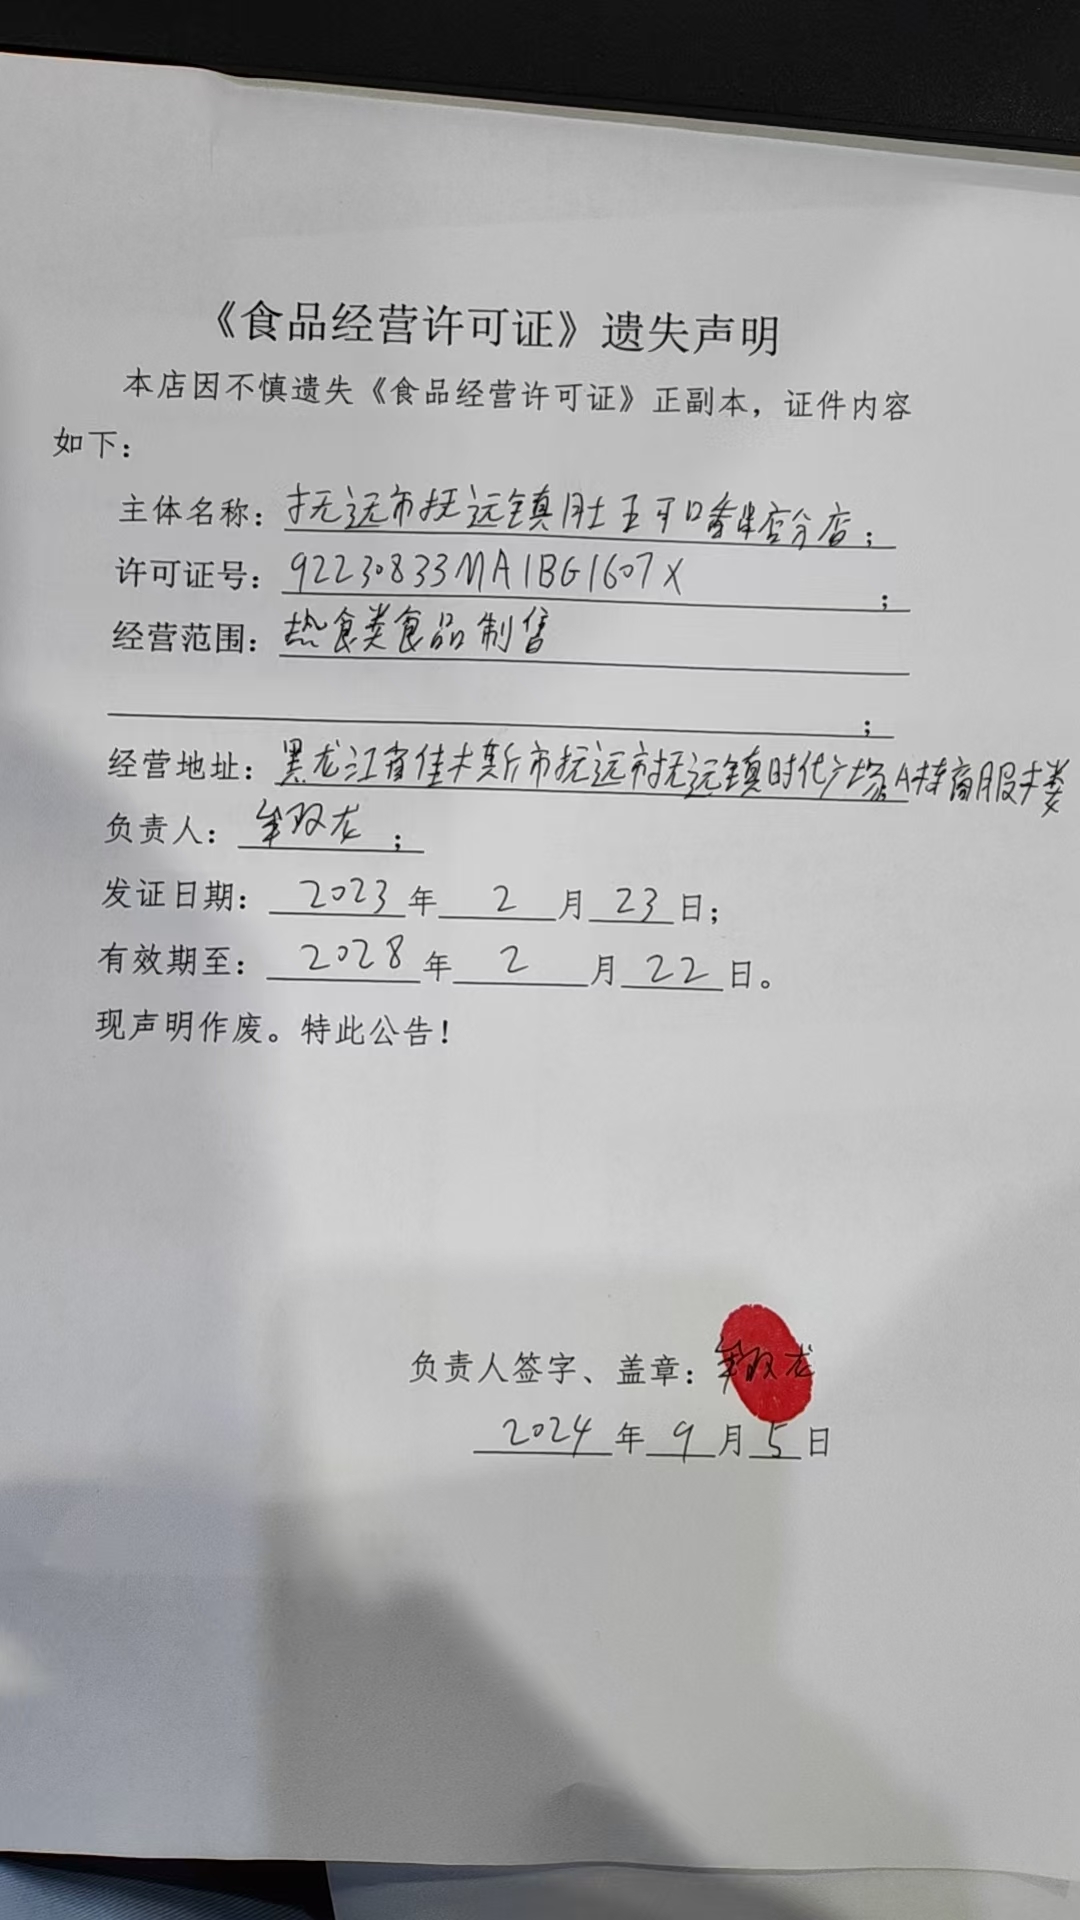 《食品经营许可证》遗失声明
本店因不慎遗失《食品经营许可证》正副本，证件内容
如下：
主体名称：抚远市抚远镇肚王可口香串店分店；
许可证号：92230833MA1BG1607X；
经营范围：热食类食品制售
；
经营地址：黑龙江省佳木斯市抚远市抚远镇时代广场A栋商服楼
负责人：牟双龙；
发证日期：2023年2月23日；
有效期至：2028年2月22日。
现声明作废。特此公告！
负责人签字、盖章：牟双龙
2024年9月5日